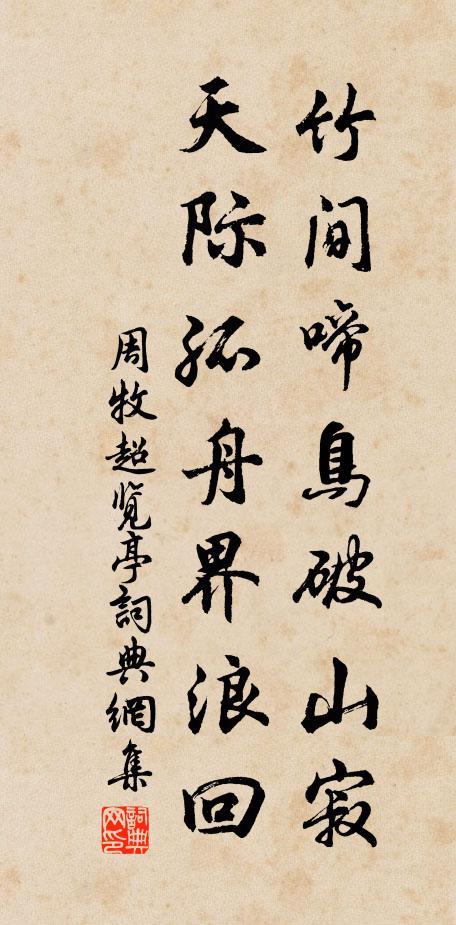 竹间啼鳥破山寂
天际孤舟界浪回
周牧超览亭詞典網集
詞典网印